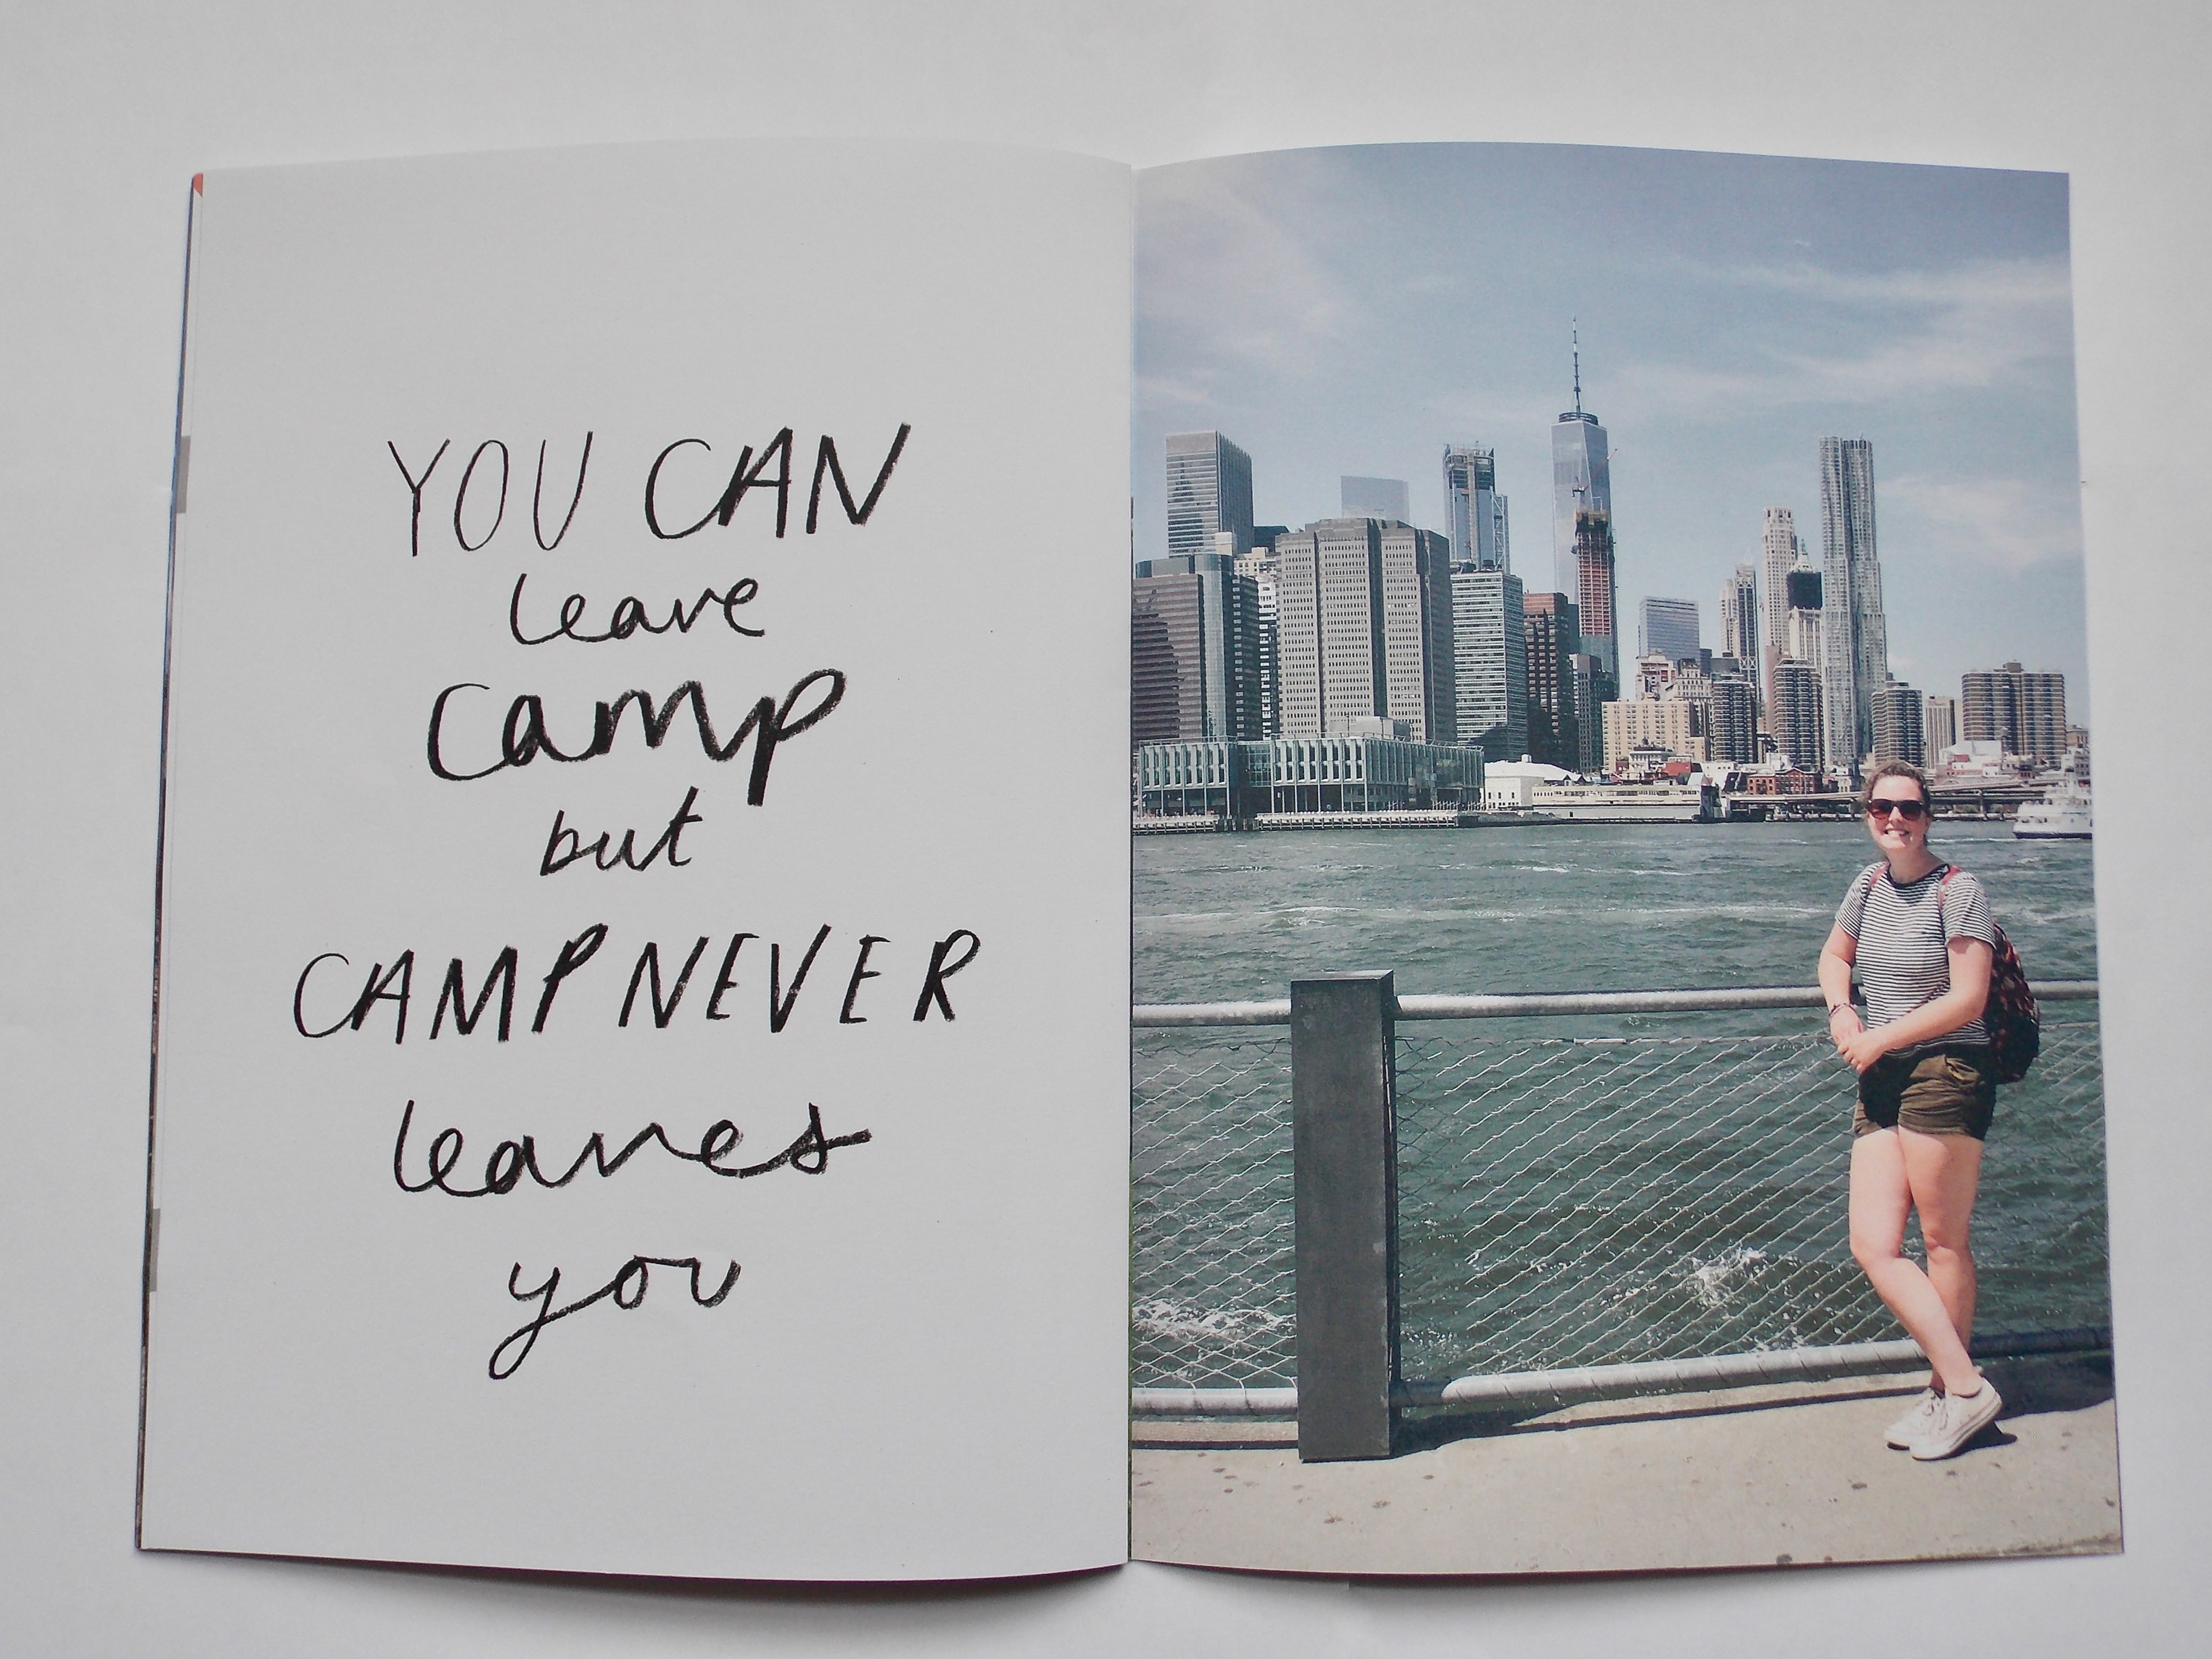 YOU CAN
leave
camp
but
CAMP NEVER
leaves
you